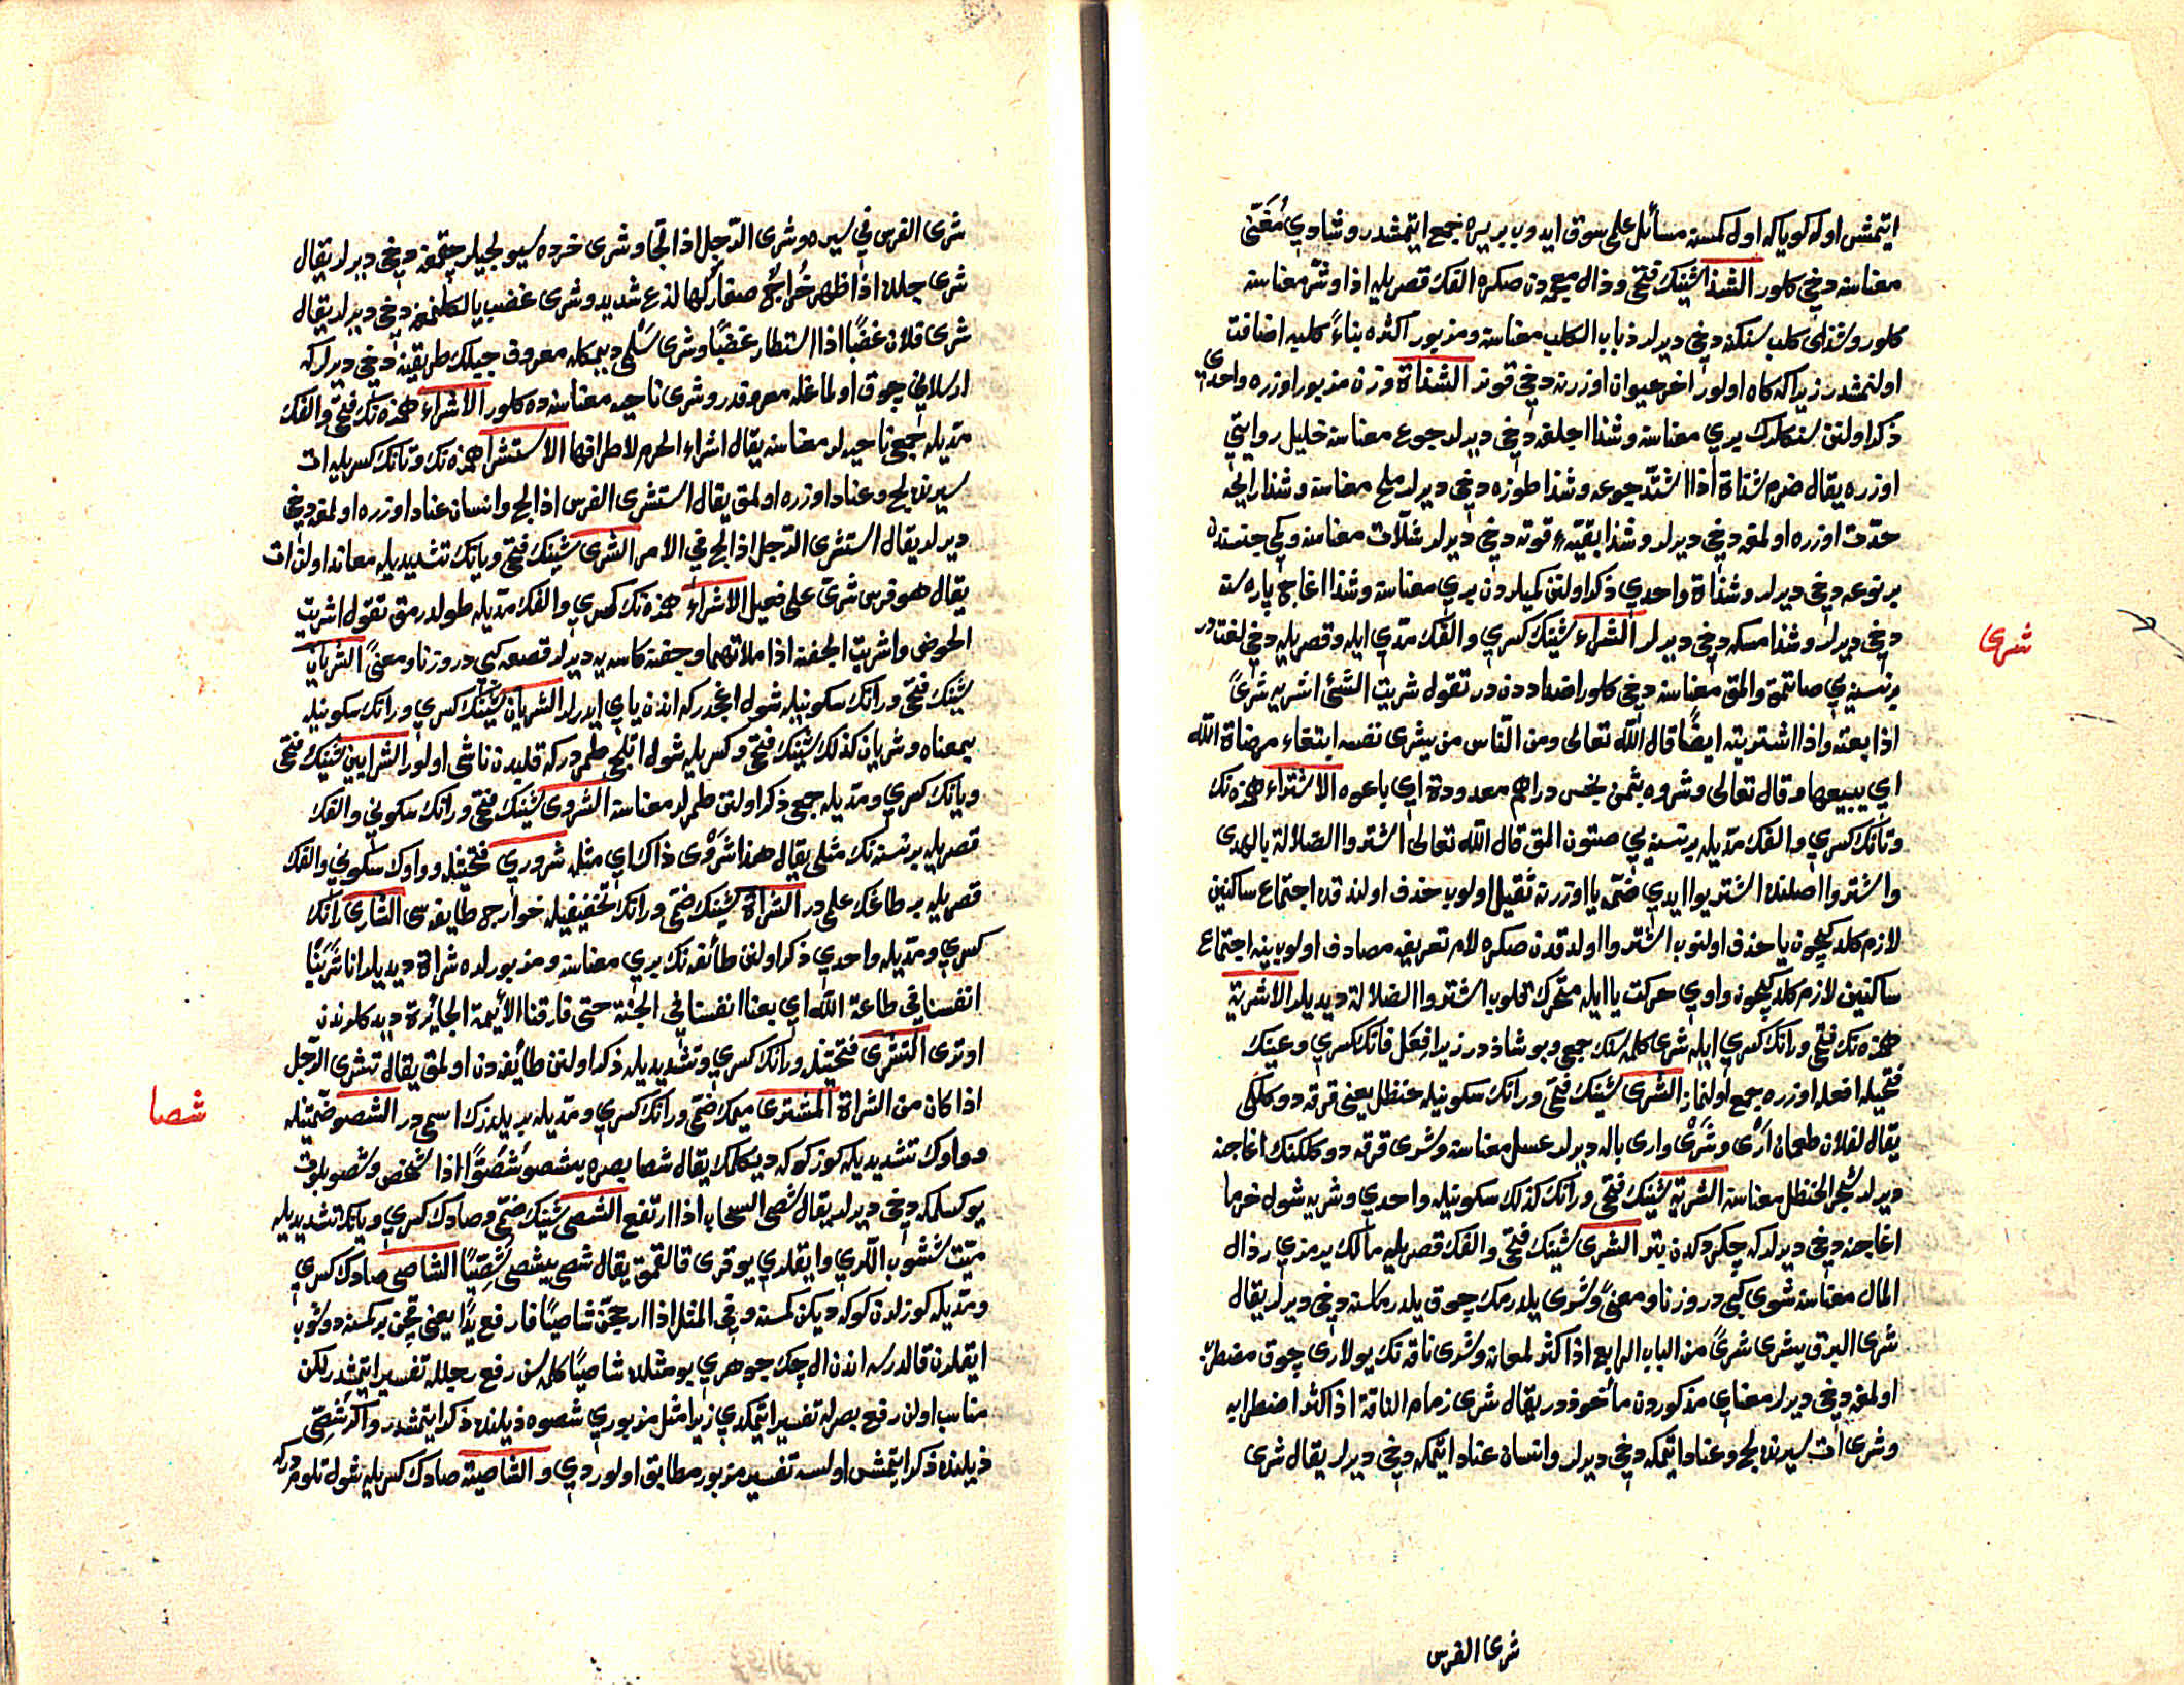 ايتمش اوله كويا كه اول كمسنه مسائل على سوق ايدوب بر يره جمع ايتمشدر وشادي مُغَنّى
معناسنه دخى كلور الشذا شينك فتحى وذال معجمه دن صكره الفك قصريله اذا وشر معناسنه
كلور وشذاى كلب سنكنه دخى ديرلر ذباب الكلب معناسنه ومزبور اكثره بناءً كلبه اضافت
اولنمشدر زيرا كه كاه اولور اخر حيوان اوزرينه دخى قونر الشذاة وزن مزبور اوزره واحدى
ذكر اولنن سنكلرك بري معناسنه وشذا اجلغه دخى ديرلر جوع معناسنه خليل روايتي
اوزره يقال ضرم شذاة اذا اشتد جوعه وشذا طوزه دخى ديرلر ملح معناسنه وشذا رايحه
حدّت اوزره اولمغه دخى ديرلر وشذا بقيّهٔ قوته دخى ديرلر شلّات معناسنه وكمى جنسندن
بر نوعه دخى ديرلر وشذاة واحدي ذكر اولنن كميلردن بري معناسنه وشذا اغاج پاره سنه
دخى ديرلر وشذا مسكه دخى ديرلر الشراء شينك كسري والفك مدّي ايله وقصريله دخى لغتدر
بر نسنه يي صاتمق والمق معناسنه دخى كلور اضداددندر تقول شريت الشئ اشريه شرىً
اذا بعته واذا اشتريته ايضًا قال الله تعالى ومن الناس من يشرى نفسه ابتغاء مرضاة الله
اي يبيعها وقال تعالى وشروه بثمن بخس دراهم معدودة اي باعوه الاشتراء همزه نك
وتانك كسري والفك مدّيله بر نسنه يي صتون المق قال الله تعالى اشتروا الضلالة بالهدى
واشتروا اصلنده اشتريوا ايدي ضمّه يا اوزرينه ثقيل اولوب حذف اولندقده اجتماع ساكنين
لازم كلدكيچون يا حذف اولنوب اشتروا اولدقدن صكره لام تعريفه مصادف اولوب ينه اجتماع
ساكنين لازم كلدكيچون واوي حركت يا ايله متحرك قلوب اشتروا الضلالة ديديلر الاشرية
همزه نك فتحى ورانك كسري ايله شرى كلمه سنك جمعى وبو شاذدر زيرا فِعَل فانك كسري وعينك
فتحيله افعله اوزره جمع اولنماز الشرى شينك فتحى ورانك سكونيله حنظل يعنى قرقه دوكلكى
يقال لفلان طعمان اَرْىٌ وشَرْىٌ وارى باله ديرلر عسل معناسنه وشرى قرقه دوكلكنك اغاجنه
ديرلر شجر الحنظل معناسنه الشرية شينك فتحى ورانك كذلك سكونيله واحدي وشريه شول خرما
اغاجنه دخى ديرلر كه چكردكدن بتر الشرى شينك فتحى والفك قصريله مالك يرمزي رذال
المال معناسنه شوى كبى در وزنا ومعنىً وشرى يلدرمك چوق يلدرمكسنه دخى ديرلر يقال
شرى البرق يشرى شرىً من الباب الرابع اذا كثر لمعانه وشرى ناقه نك يولارى چوق مضطرب
اولمغه دخى ديرلر معناي مذكوردن مأخوذدر يقال شرى زمام الناقة اذا كثر اضطرابه
وشرى ات سيرنده لج وعناد ايتمكه دخى ديرلر وانسان عناد ايتمكه دخى ديرلر يقال شرى
شرى
شرى الفرس
شرى الفرس في سيره وشرى الرّجل اذا لجّ وشرى خرده سيولجيلر چقمغه دخى ديرلر يقال
شرى جلده اذا ظهر خُراج صغار لها لذع شديد وشرى غضب يالكلنمغه دخى ديرلر يقال
شرى فلان غضبًا اذا استطار غضبًا وشرى سَلْمى ديمكله معروف جبلك طريقينه دخى ديرلر كه
ارسلاني چوق اولماغله معروفدر وشرى ناحيه معناسنه ده كلور الاشراء همزه نك فتحى والفك
مدّيله جمعى ناحيه لر معناسنه يقال اشراء الحرم لاطرافها الاستشرا همزه نك وتانك كسريله ات
سيرنده لج وعناد اوزره اولمق يقال استشرى الفرس اذا لج وانسان عناد اوزره اولمغه دخى
ديرلر يقال استشرى الرّجل اذا لج في الامر الشرى شينك فتحى ويانك تشديديله معاند اولن ات
يقال هو فرس شرىّ على فعيل الاشراء همزه نك كسري والفك مدّيله طولدرمق تقول اشريت
الحوض واشريت الجفنة اذا ملأتهما وجفنه كاسه يه ديرلر قصعه كبى در وزنا ومعنىً الشريان
شينك فتحى ورانك سكونيله شول اغجدر كه اندن ياي ايدرلر الشريان شينك كسري ورانك سكونيله
بمعناه وشريان كذلك شينك فتحى وكسريله شول اتلجى طمردر كه قلبدن ناشى اولور الشرايين شينك فتحى
ويانك كسري ومدّيله جمعى ذكر اولنن طمرلر معناسنه الشروى شينك فتحى ورانك سكونى والفك
قصريله بر نسنه نك مثلى يقال هذا شَرْوى ذاك اي مثله شرورى فتحتينله وواوك سكونى والفك
قصريله بر طاغك علمي در الشراة شينك ضمّى ورانك تخفيفيله خوارج طايفه سى الشارى رانك
كسري ومدّيله واحدي ذكر اولنن طائفه نك بري معناسنه ومزبورلره شراة ديديلر انا شرينا
انفسنا في طاعة الله اي بعنا انفسنا في الجنّة حتى فارقنا الأئيمة الجائرة ديدكلرندن
اوترى التشرى فتحتينله ورانك كسري وتشديديله ذكر اولنن طائفه دن اولمق يقال تشرى الرّجل
اذا كان من الشراة المشترى ميمك ضمّى ورانك كسري ومدّيله بر يلدزك اسمى در الشصو ضمّتينله
وواوك تشديديله كوز كوكه ديكلمك يقال شصا بصره يشصو شُصُوًّا اذا شخص وشصو بلوت
يوكسلمكه دخى ديرلر يقال شصى السحاب اذا ارتفع الشصى شينك ضمّى وصادك كسري ويانك تشديديله
ميّت شيشوب اللري وايقلري يوقرى قالقمق يقال شصى يشصى شُصِيًّا الشاصى صادك كسري
ومدّيله كوزلرن كوكه ديكن كمسنه وفى المثل اذا ارجحنّ شاصيًا فارفع يدًا يعنى قچن بر كمسنه دوشوب
ايقلرن قالدرسه اندن الى چك جوهري بو مثلده شاصيًا كلمه سن رفع رجلله تفسير ايتمشدر لكن
مناسب اولن رفع بصرله تفسير ايتمكدي زيرا مثل مزبوري شصوه ذيلنده ذكر ايتمشدر واكر شصى
ذيلنده ذكر ايتمش اولسه تفسير مزبور مطابق اولوردي والشاصية صادك كسريله شول تلومدر كه
شصا